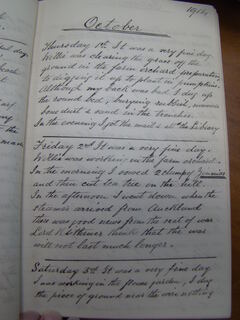 1914
October
Thursday 1st It was a very fine day.
Willie was clearing the grass off the
ground in the farm orchard preparatory
to digging it up to plant in pumpkins.
Although my back was bad I dug up
the round bed, burying
some dust & sand in the trenches.
In the evening I got the mail & at the Library
Friday 2nd It was a very fine day.
Willie was working in the farm orchard.
In the morning I sowed 2 clumps
and then cut tea tree on the hill.
In the afternoon I went down when the
steamer arrived from Auckland
there was good news from the seat of war
Lord Kitchener thinks that the war
will not last much longer.
Saturday 3rd It was a very fine day
I was working in the flower garden, I dug
the piece of ground near the